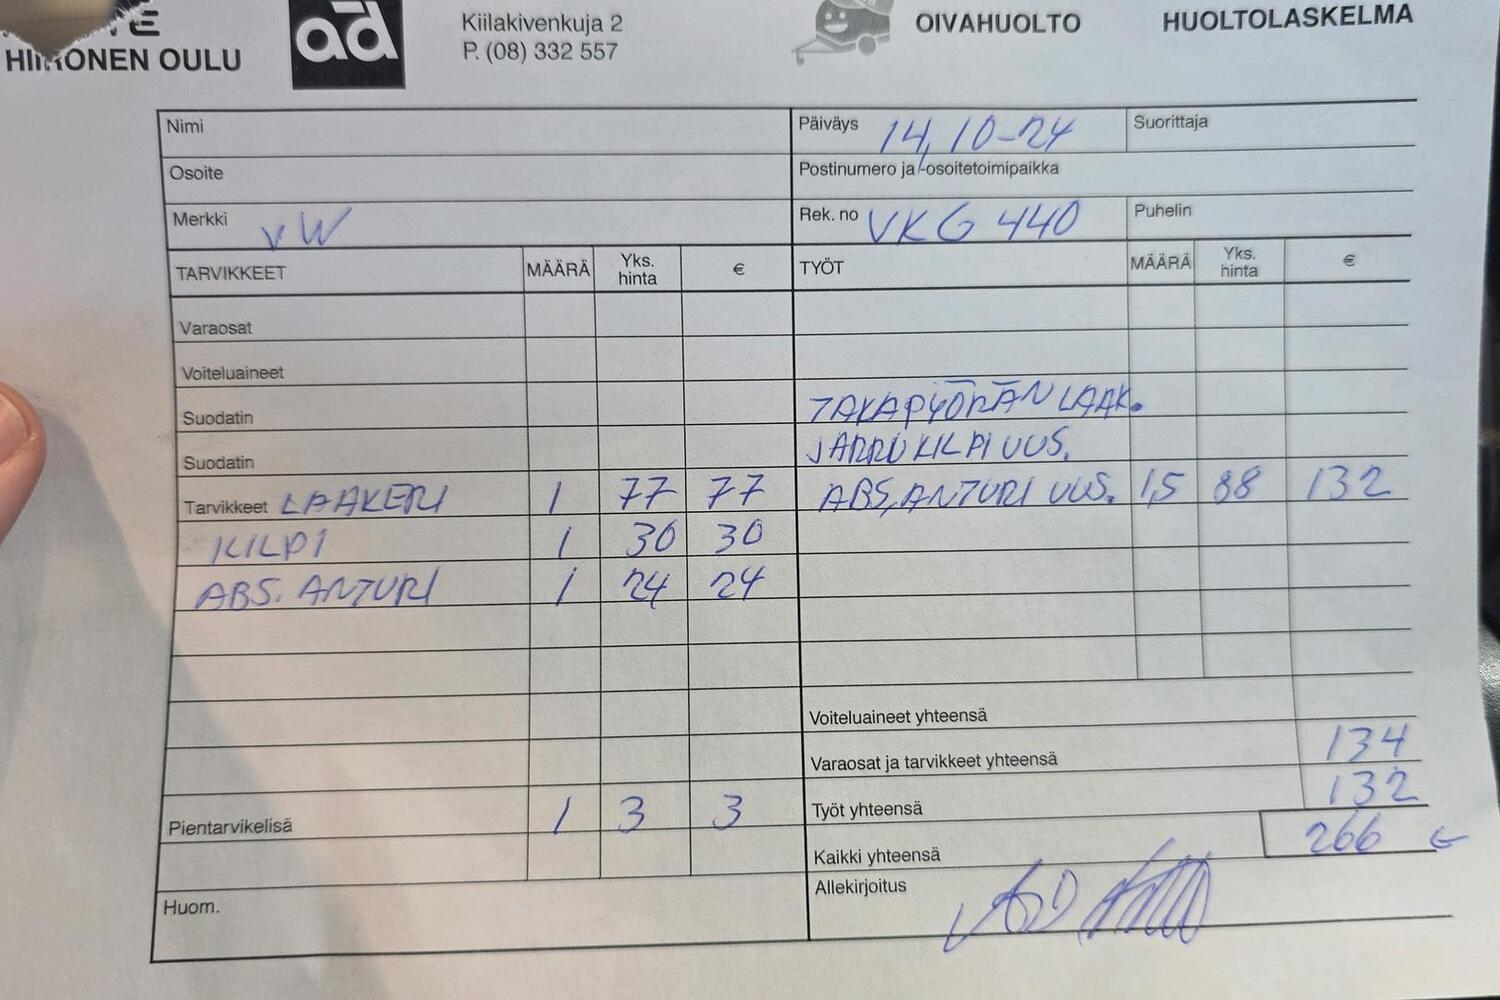 HIRVONEN OULU
ad
Kiilakivenkuja 2
P. (08) 332 557
OIVAHUOLTO
HUOLTOLASKELMA
Nimi
Päiväys 14,10-24
Suorittaja
Osoite
Postinumero ja -osoitetoimipaikka
Merkki VW
Rek. no VKG 440
Puhelin
TARVIKKEET MÄÄRÄ Yks. hinta €
TYÖT MÄÄRÄ Yks. hinta €
Varaosat
Voiteluaineet
Suodatin
TAKAPYÖRÄN LAAK.
Suodatin
JARRUKILPI UUS.
Tarvikkeet LAAKERI 1 77 77
ABS, ANTURI UUS. 1,5 88 132
KILPI 1 30 30
ABS. ANTURI 1 24 24
Voiteluaineet yhteensä
Varaosat ja tarvikkeet yhteensä 134
Pientarvikelisä 1 3 3
Työt yhteensä 132
Kaikki yhteensä 266
Allekirjoitus
Huom.